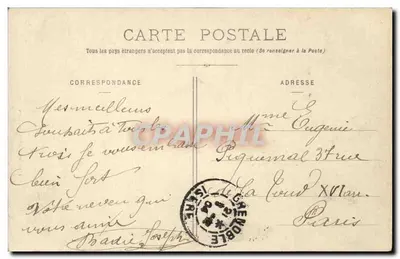 CARTE POSTALE
Tous les pays étrangers n'acceptent pas la correspondance au recto (Se renseigner à la Poste)
CORRESPONDANCE
ADRESSE
Mes meilleurs
souhaits à toute
je vous em
bien fort
Votre neveu qui
vous aime
Joseph
Mme Eugenie
Piquemal 37 rue
de la Tour XVI
Paris
GRENOBLE
ISÈRE
CPAPHIL